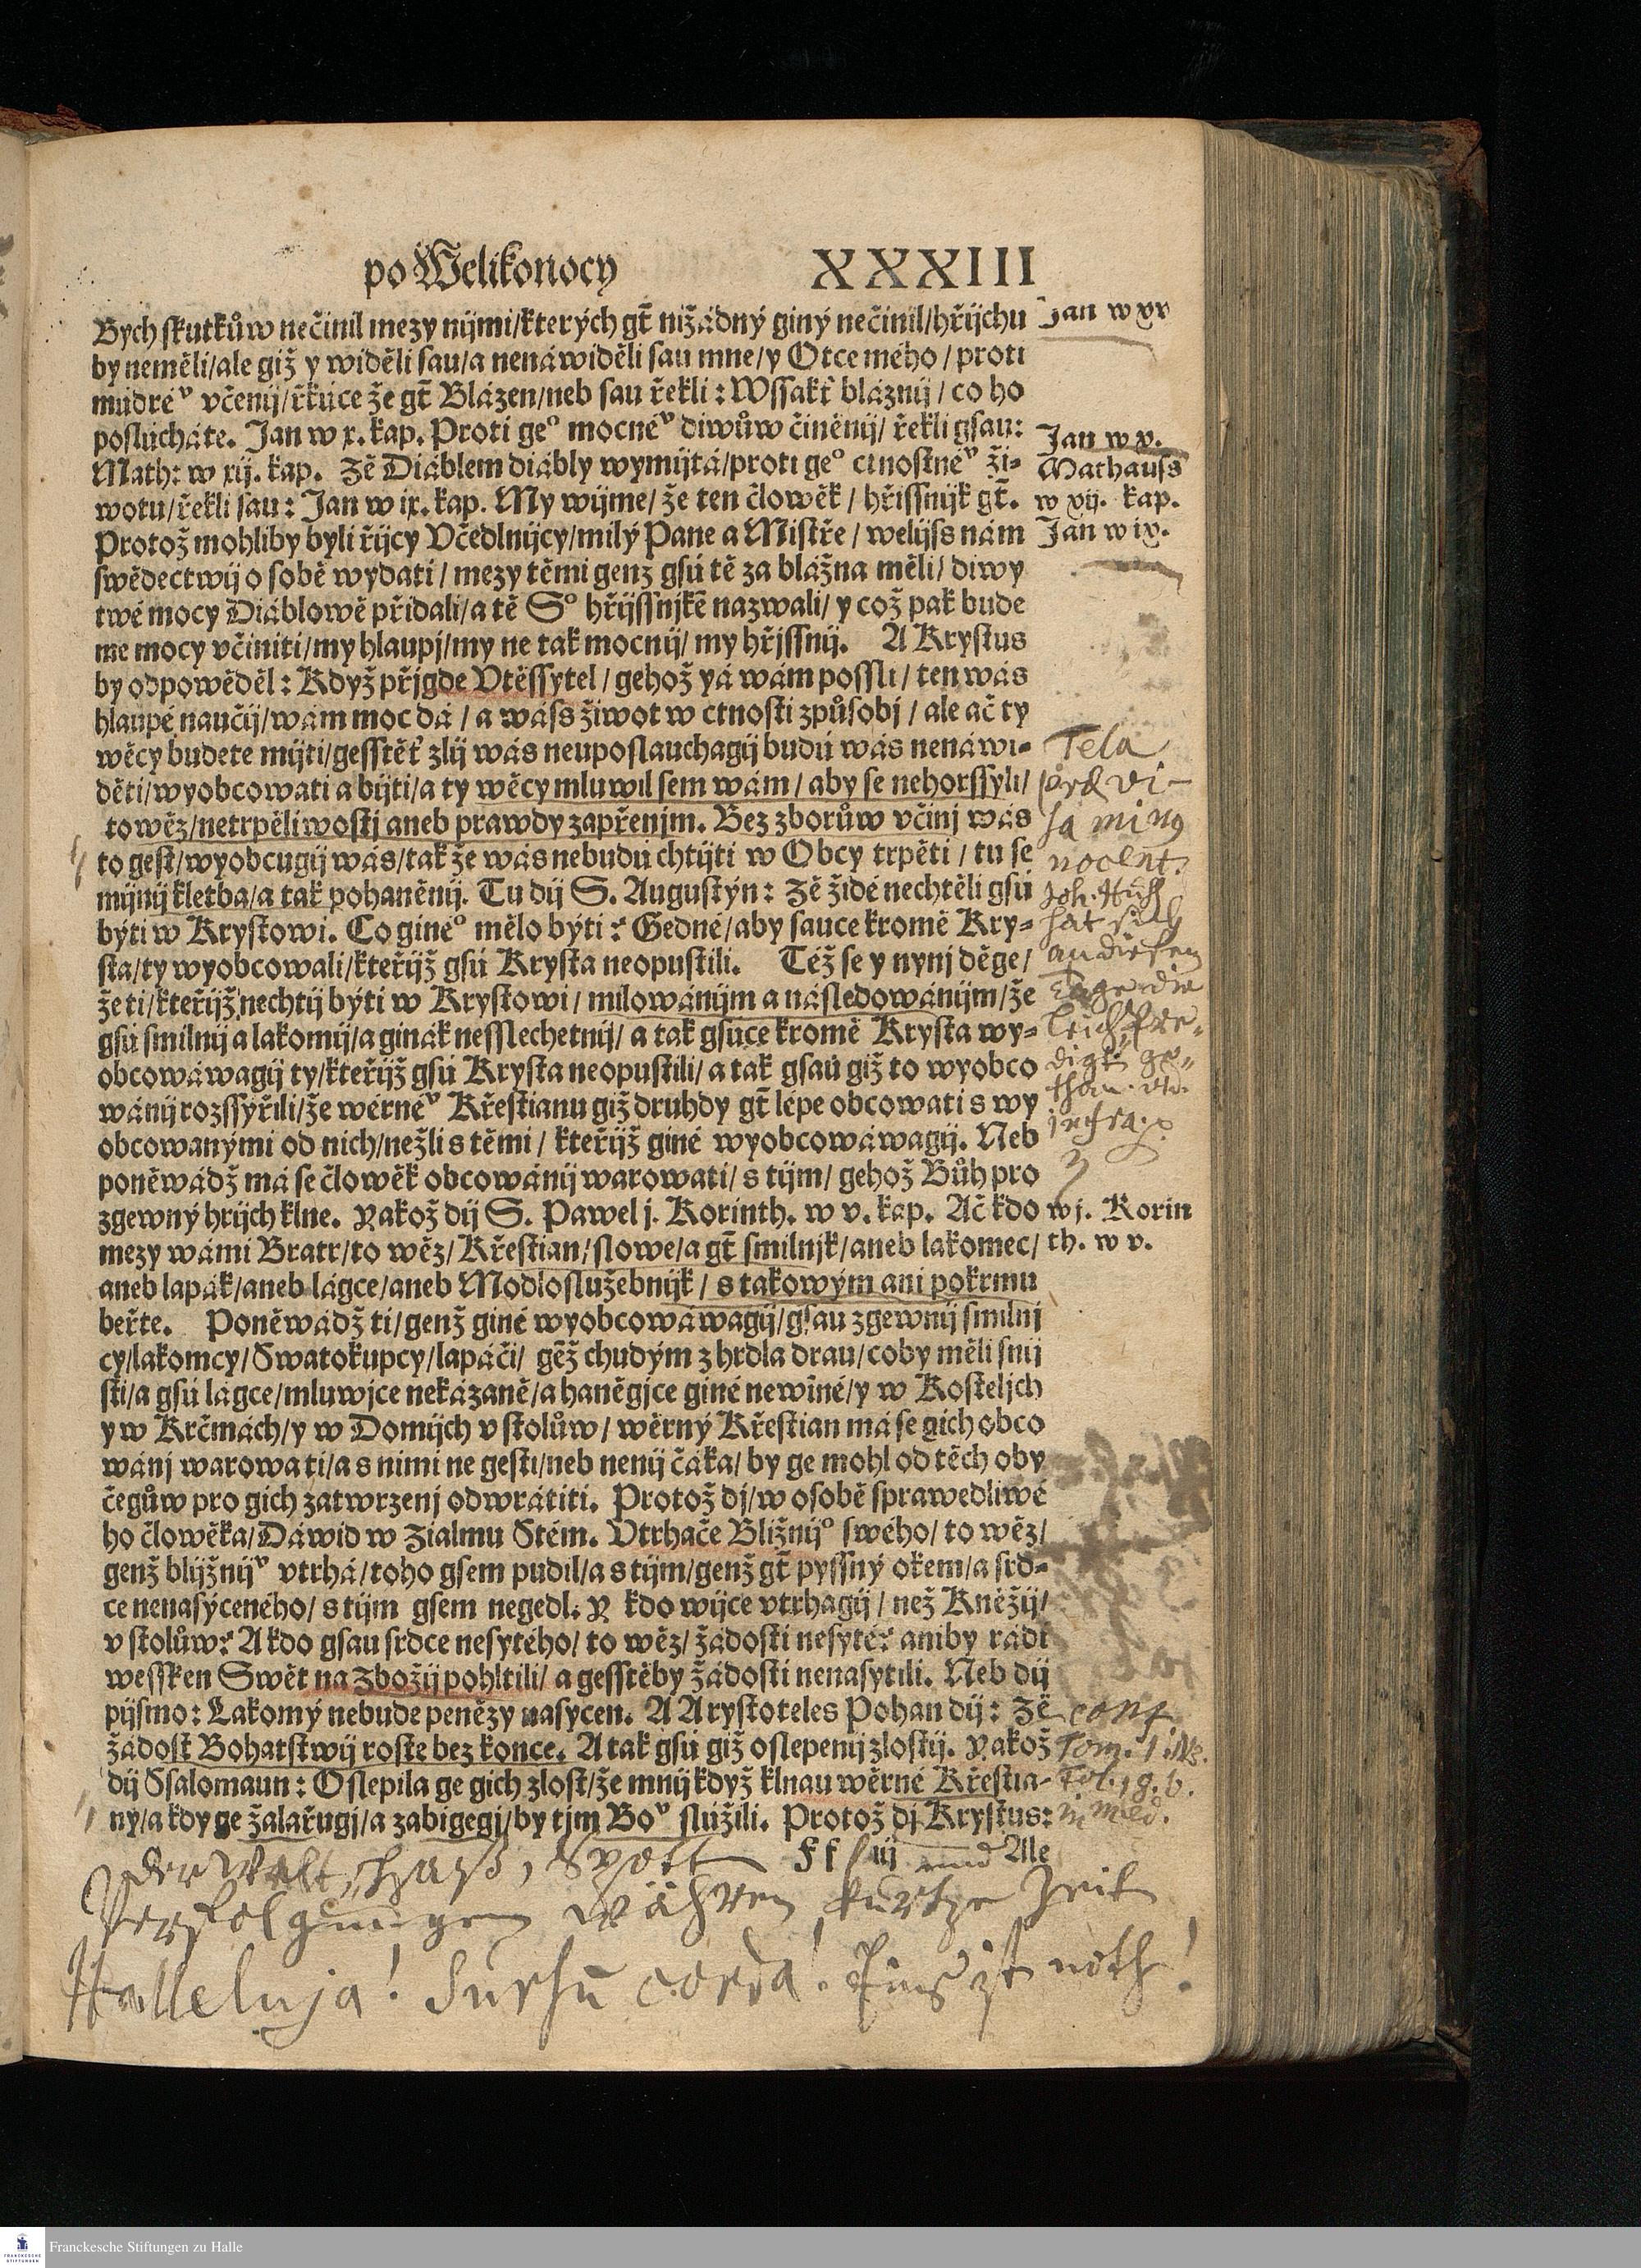 po Welikonocy XXXIII
Bych skutkůw nečinil mezy nijmi/kterých gt̃ nižádný giný nečinil/hřijchu
by neměli/ale giž y widěli sau/a nenáwiděli sau mne/y Otce mého/proti
múdréͮ včenij/řkúce že gt̃ Blázen/neb sau řekli: Wssakť bláznij/co ho
poslúcháte. Jan w x. kap. Proti geͦ mocnéͮ diwůw činěnij/ řekli gsau:
Math: w xij. kap. Zě Diáblem diábly wymijtá/proti geͦ ctnostnéͮ ži-
wotu/řekli sau: Jan w ix. kap. My wijme/že ten člowěk/hřissnijk gt̃.
Protož mohliby byli řijcy Včedlnijcy/milý Pane a Mistře/welijss nám
swědectwij o sobě wydati/mezy těmi genž gsú tě za blázna měli/diwy
twé mocy Diáblowě přidali/a tě Sͦ hřijssnjkē nazwali/y což pak bude
me mocy včiniti/my hlaupj/my ne tak mocnij/my hřjssnij. A Krystus
by odpowěděl: Když přijgde Vtěssytel/gehož yá wám possli/ten wás
hlaupé naučij/wám moc dá/a wáss žiwot w ctnosti způsobj/ale ač ty
wěcy budete mijti/gesstěť zlij wás neuposlauchagij budú wás nenáwi-
děti/wyobcowati a bijti/a ty wěcy mluwil sem wám/aby se nehorssyli/
to wěz/netrpěliwostj aneb prawdy zapřenjm. Bez zborůw včinj wás
to gest/wyobcugij wás/tak že wás nebudú chtijti w Obcy trpěti/tu se
mijnij kletba/a tak pohaněnij. Tu dij S. Augustýn: Zě židé nechtěli gsú
býti w Krystowi. Co gineͦ mělo býti? Gedné/aby sauce kromě Kry-
sta/ty wyobcowali/kteřijž gsú Krysta neopustili. Též se y nynj děge/
že ti/kteřijž nechtij býti w Krystowi/milowánijm a následowánijm/že
gsú smilnij a lakomij/a ginák nesslechetnij/a tak gsúce kromě Krysta wy-
obcowáwagij ty/kteřijž gsú Krysta neopustili/a tak gsaú giž to wyobco
wánij rozssyřili/že wěrnéͮ Křestianu giž druhdy gt̃ lépe obcowati s wy
obcowanými od nich/nežli s těmi/kteřijž giné wyobcowáwagij. Neb
poněwádž má se člowěk obcowánij warowati/s tijm/gehož Bůh pro
zgewný hrijch klne. Yakož dij S. Pawel j. Korinth. w v. kap. Ač kdo
mezy wámi Bratr/to wěz/Křestian/slowe/a gt̃ smilnjk/aneb lakomec/
aneb lapák/aneb lágce/aneb Modloslužebnijk/s takowým ani pokrmu
beřte. Poněwádž ti/genž giné wyobcowáwagij/gsau zgewnij smilnj
cy/lakomcy/Swatokupcy/lapáči/gēž chudým z hrdla drau/coby měli snij
sti/a gsú lágce/mluwjce nekázaně/a haněgjce giné newĩné/y w Kosteljch
y w Krčmách/y w Domijch v stolůw/wěrný Křestian má se gich obco
wánj warowati/a s nimi ne gesti/neb nenij čáka/by ge mohl od těch oby
čegůw pro gich zatwrzenj odwrátiti. Protož dj/w osobě sprawedliwé
ho člowěka/Dáwid w Zialmu Stém. Vtrhače Bližnijͦ swého/to wěz/
genž blijžnijͮ vtrhá/toho gsem pudil/a s tijm/genž gt̃ pyssný okem/a srd-
ce nenasyceného/s tijm gsem negedl. Y kdo wijce vtrhagij/než Kněžij/
v stolůw? A kdo gsau srdce nesytého/to wěz/žádosti nesyté? aniby rádi
wessken Swět na Zbožij pohltili/a gesstěby žádosti nenasytili. Neb dij
pijsmo: Lakomý nebude penězy nasycen. A Arystoteles Pohan dij: Zě
žádost Bohatstwij roste bez konce. A tak gsú giž oslepenij zlostij. Yakož
dij Ssalomaun: Oslepila ge gich zlost/že mnij když klnau wěrné Křestia-
ny/a kdy ge žalařugj/a zabigegj/by tjm Boͮ slúžili. Protož dj Krystus:
Ff iij Ale
Jan w xv
Jan w x.
Mathauss
w xij. kap.
Jan w ix.
Tela
prævi-
sa minꝰ
nocent.
Joh. Huß
hat sich
an diesem
Tage die
Leich Pre-
digt ge-
than. etc.
infra.
w j. Korin
th. w v.
conf.
Tom. 1.
Fol. 19. b.
in med.
Der Welt Haß, Spott und
Verfolgungen währen kurtze Zeit
Halleluja! Sursū corda! Eins ist noth!
Franckesche Stiftungen zu Halle